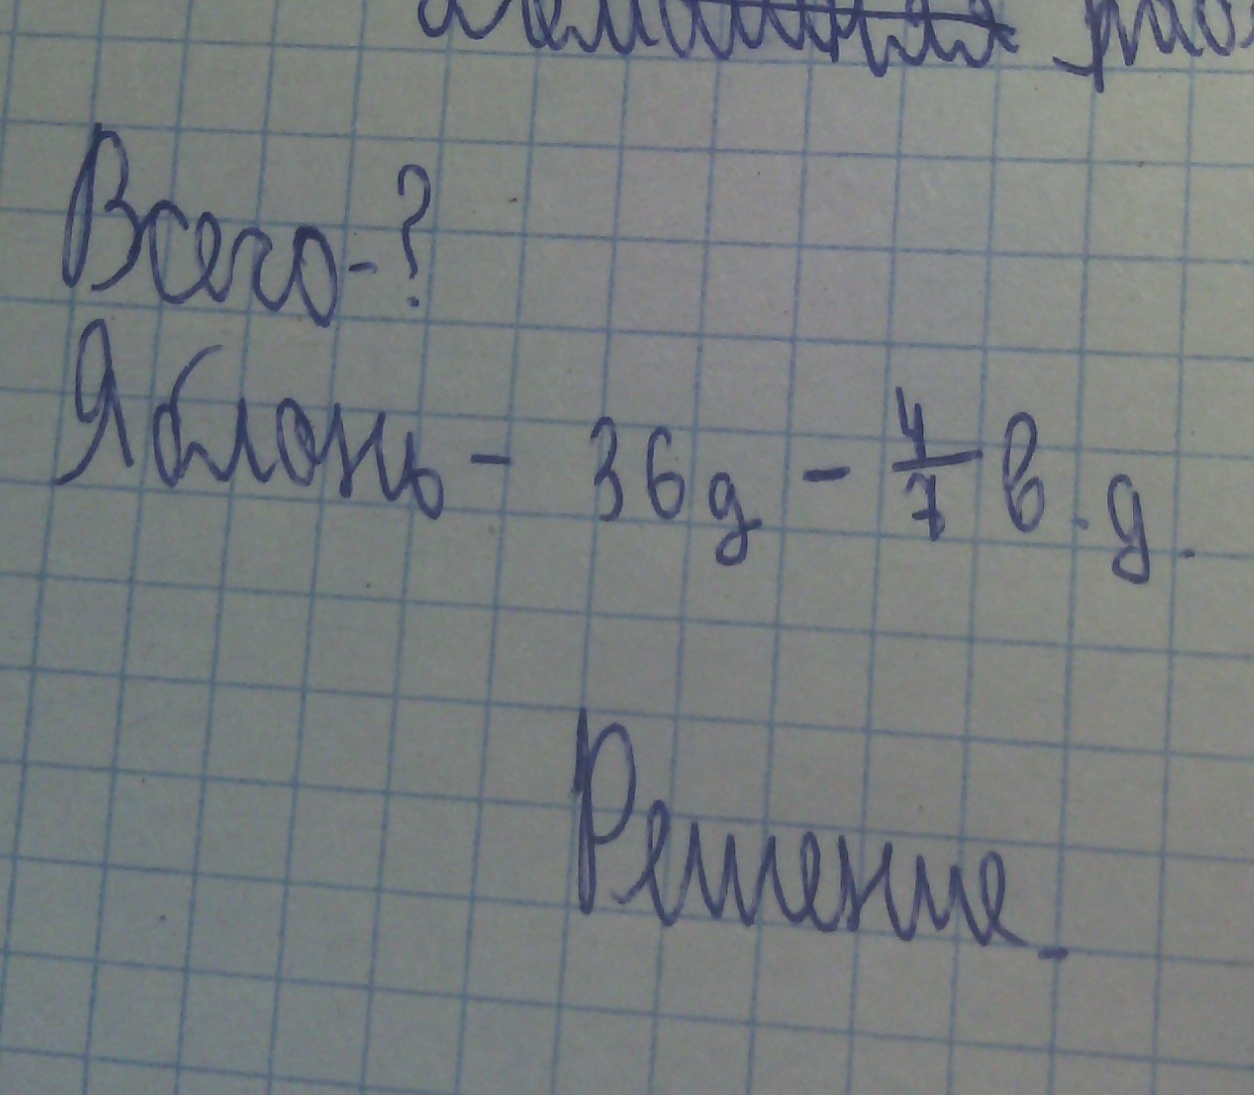 Всего-?
Яблонь - 36 д - 4/7 в. д.
Решение.